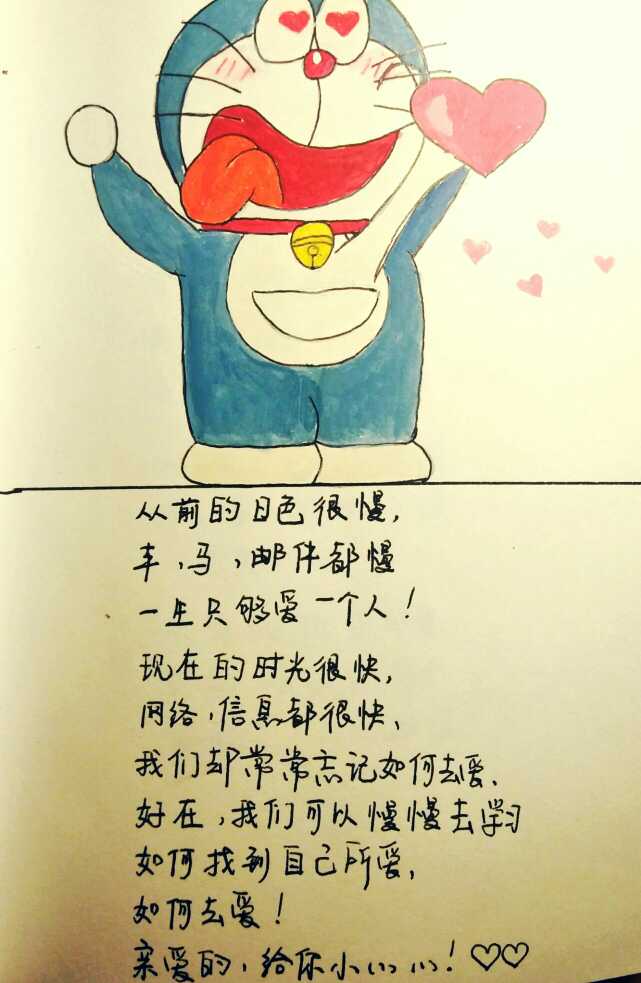 从前的日色很慢,
车,马,邮件都慢
一生只够爱一个人!
现在的时光很快,
网络,信息都很快、
我们却常常忘记如何去爱、
好在,我们可以慢慢去学习
如何找到自己所爱,
如何去爱!
亲爱的,给你小心心!♡♡